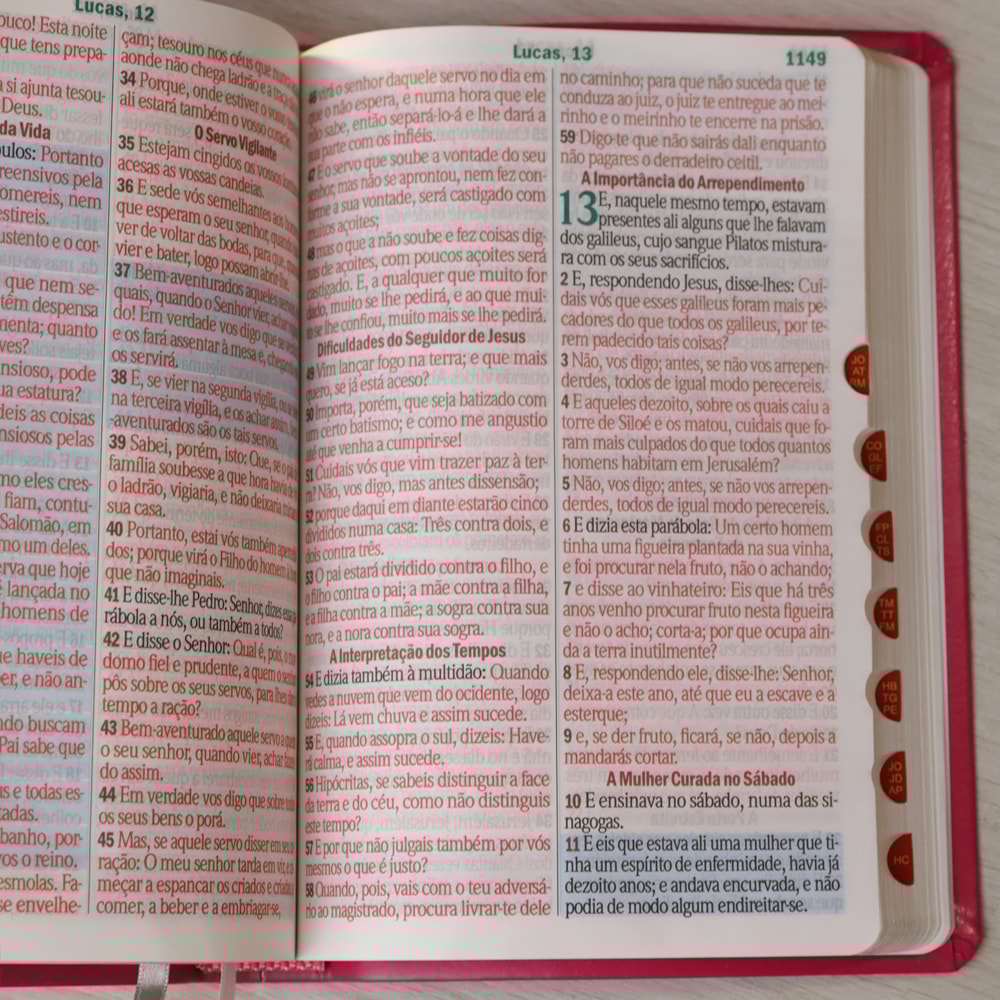 Lucas, 12
ouco! Esta noite
que tens prepa-
a si ajunta tesou-
Deus.
da Vida
ulos: Portanto
reensivos pela
omereis, nem
estireis.
ustento e o cor-
que nem se-
têm despensa
menta; quanto
ves?
nsioso, pode
ua estatura?
deis as coisas
nsiosos pelas
mo eles cres-
fiam, contu-
Salomão, em
mo um deles.
erva que hoje
lançada no
homens de
ue haveis de
er, e não an-
ndo buscam
Pai sabe que
us e todas es-
tadas.
banho, por-
vos o reino.
esmolas. Fa-
se envelhe-
çam; tesouro nos céus que
aonde não chega ladrão e a
34 Porque, onde estiver o vosso
ali estará também o vosso
O Servo Vigilante
35 Estejam cingidos os vossos
acesas as vossas candeias.
36 E sede vós semelhantes aos
que esperam o seu senhor, quando
ver de voltar das bodas, para que,
vier e bater, logo possam abrir-lhe.
37 Bem-aventurados aqueles
quais, quando o Senhor vier, achar
do! Em verdade vos digo que se
e os fará assentar à mesa e,
os servirá.
38 E, se vier na segunda vigília,
na terceira vigília, e os achar
-aventurados são os tais servos.
39 Sabei, porém, isto: Que, se o
família soubesse a que hora havia de
o ladrão, vigiaria, e não deixaria
sua casa.
40 Portanto, estai vós também
dos; porque virá o Filho do homem à
que não imaginais.
41 E disse-lhe Pedro: Senhor, dizes essa
rábola a nós, ou também a todos?
42 E disse o Senhor: Qual é, pois, o
domo fiel e prudente, a quem o senhor
pôs sobre os seus servos, para lhes
tempo a ração?
43 Bem-aventurado aquele servo a quem
o seu senhor, quando vier, achar
do assim.
44 Em verdade vos digo que sobre todos
os seus bens o porá.
45 Mas, se aquele servo disser em seu
ração: O meu senhor tarda em vir, e
meçar a espancar os criados e criadas
comer, a beber e a embriagar-se,
Lucas, 13
1149
46 virá o senhor daquele servo no dia em
que o não espera, e numa hora que ele
não sabe, então separá-lo-á e lhe dará a
sua parte com os infiéis.
47 E o servo que soube a vontade do seu
senhor, mas não se aprontou, nem fez con-
forme a sua vontade, será castigado com
muitos açoites;
48 mas o que a não soube e fez coisas dig-
nas de açoites, com poucos açoites será
castigado. E, a qualquer que muito for
dado, muito se lhe pedirá, e ao que mui-
to se lhe confiou, muito mais se lhe pedirá.
Dificuldades do Seguidor de Jesus
49 Vim lançar fogo na terra; e que mais
quero, se já está aceso?
50 Importa, porém, que seja batizado com
um certo batismo; e como me angustio
até que venha a cumprir-se!
51 Cuidais vós que vim trazer paz à ter-
ra? Não, vos digo, mas antes dissensão;
52 porque daqui em diante estarão cinco
divididos numa casa: Três contra dois, e
dois contra três.
53 O pai estará dividido contra o filho, e
o filho contra o pai; a mãe contra a filha,
e a filha contra a mãe; a sogra contra sua
nora, e a nora contra sua sogra.
A Interpretação dos Tempos
54 E dizia também à multidão: Quando
vedes a nuvem que vem do ocidente, logo
dizeis: Lá vem chuva e assim sucede.
55 E, quando assopra o sul, dizeis: Have-
rá calma, e assim sucede.
56 Hipócritas, se sabeis distinguir a face
da terra e do céu, como não distinguis
este tempo?
57 E por que não julgais também por vós
mesmos o que é justo?
58 Quando, pois, vais com o teu adversá-
rio ao magistrado, procura livrar-te dele
no caminho; para que não suceda que te
conduza ao juiz, o juiz te entregue ao mei-
rinho e o meirinho te encerre na prisão.
59 Digo-te que não sairás dali enquanto
não pagares o derradeiro ceitil.
A Importância do Arrependimento
13 E, naquele mesmo tempo, estavam
presentes ali alguns que lhe falavam
dos galileus, cujo sangue Pilatos mistura-
ra com os seus sacrifícios.
2 E, respondendo Jesus, disse-lhes: Cui-
dais vós que esses galileus foram mais pe-
cadores do que todos os galileus, por te-
rem padecido tais coisas?
3 Não, vos digo; antes, se não vos arrepen-
derdes, todos de igual modo perecereis.
4 E aqueles dezoito, sobre os quais caiu a
torre de Siloé e os matou, cuidais que fo-
ram mais culpados do que todos quantos
homens habitam em Jerusalém?
5 Não, vos digo; antes, se não vos arrepen-
derdes, todos de igual modo perecereis.
6 E dizia esta parábola: Um certo homem
tinha uma figueira plantada na sua vinha,
e foi procurar nela fruto, não o achando;
7 e disse ao vinhateiro: Eis que há três
anos venho procurar fruto nesta figueira
e não o acho; corta-a; por que ocupa ain-
da a terra inutilmente?
8 E, respondendo ele, disse-lhe: Senhor,
deixa-a este ano, até que eu a escave e a
esterque;
9 e, se der fruto, ficará, se não, depois a
mandarás cortar.
A Mulher Curada no Sábado
10 E ensinava no sábado, numa das si-
nagogas.
11 E eis que estava ali uma mulher que ti-
nha um espírito de enfermidade, havia já
dezoito anos; e andava encurvada, e não
podia de modo algum endireitar-se.
JO
AT
RM
CO
GL
EF
FP
CL
TS
TM
TT
FM
HB
TG
PE
JO
JD
AP
HC